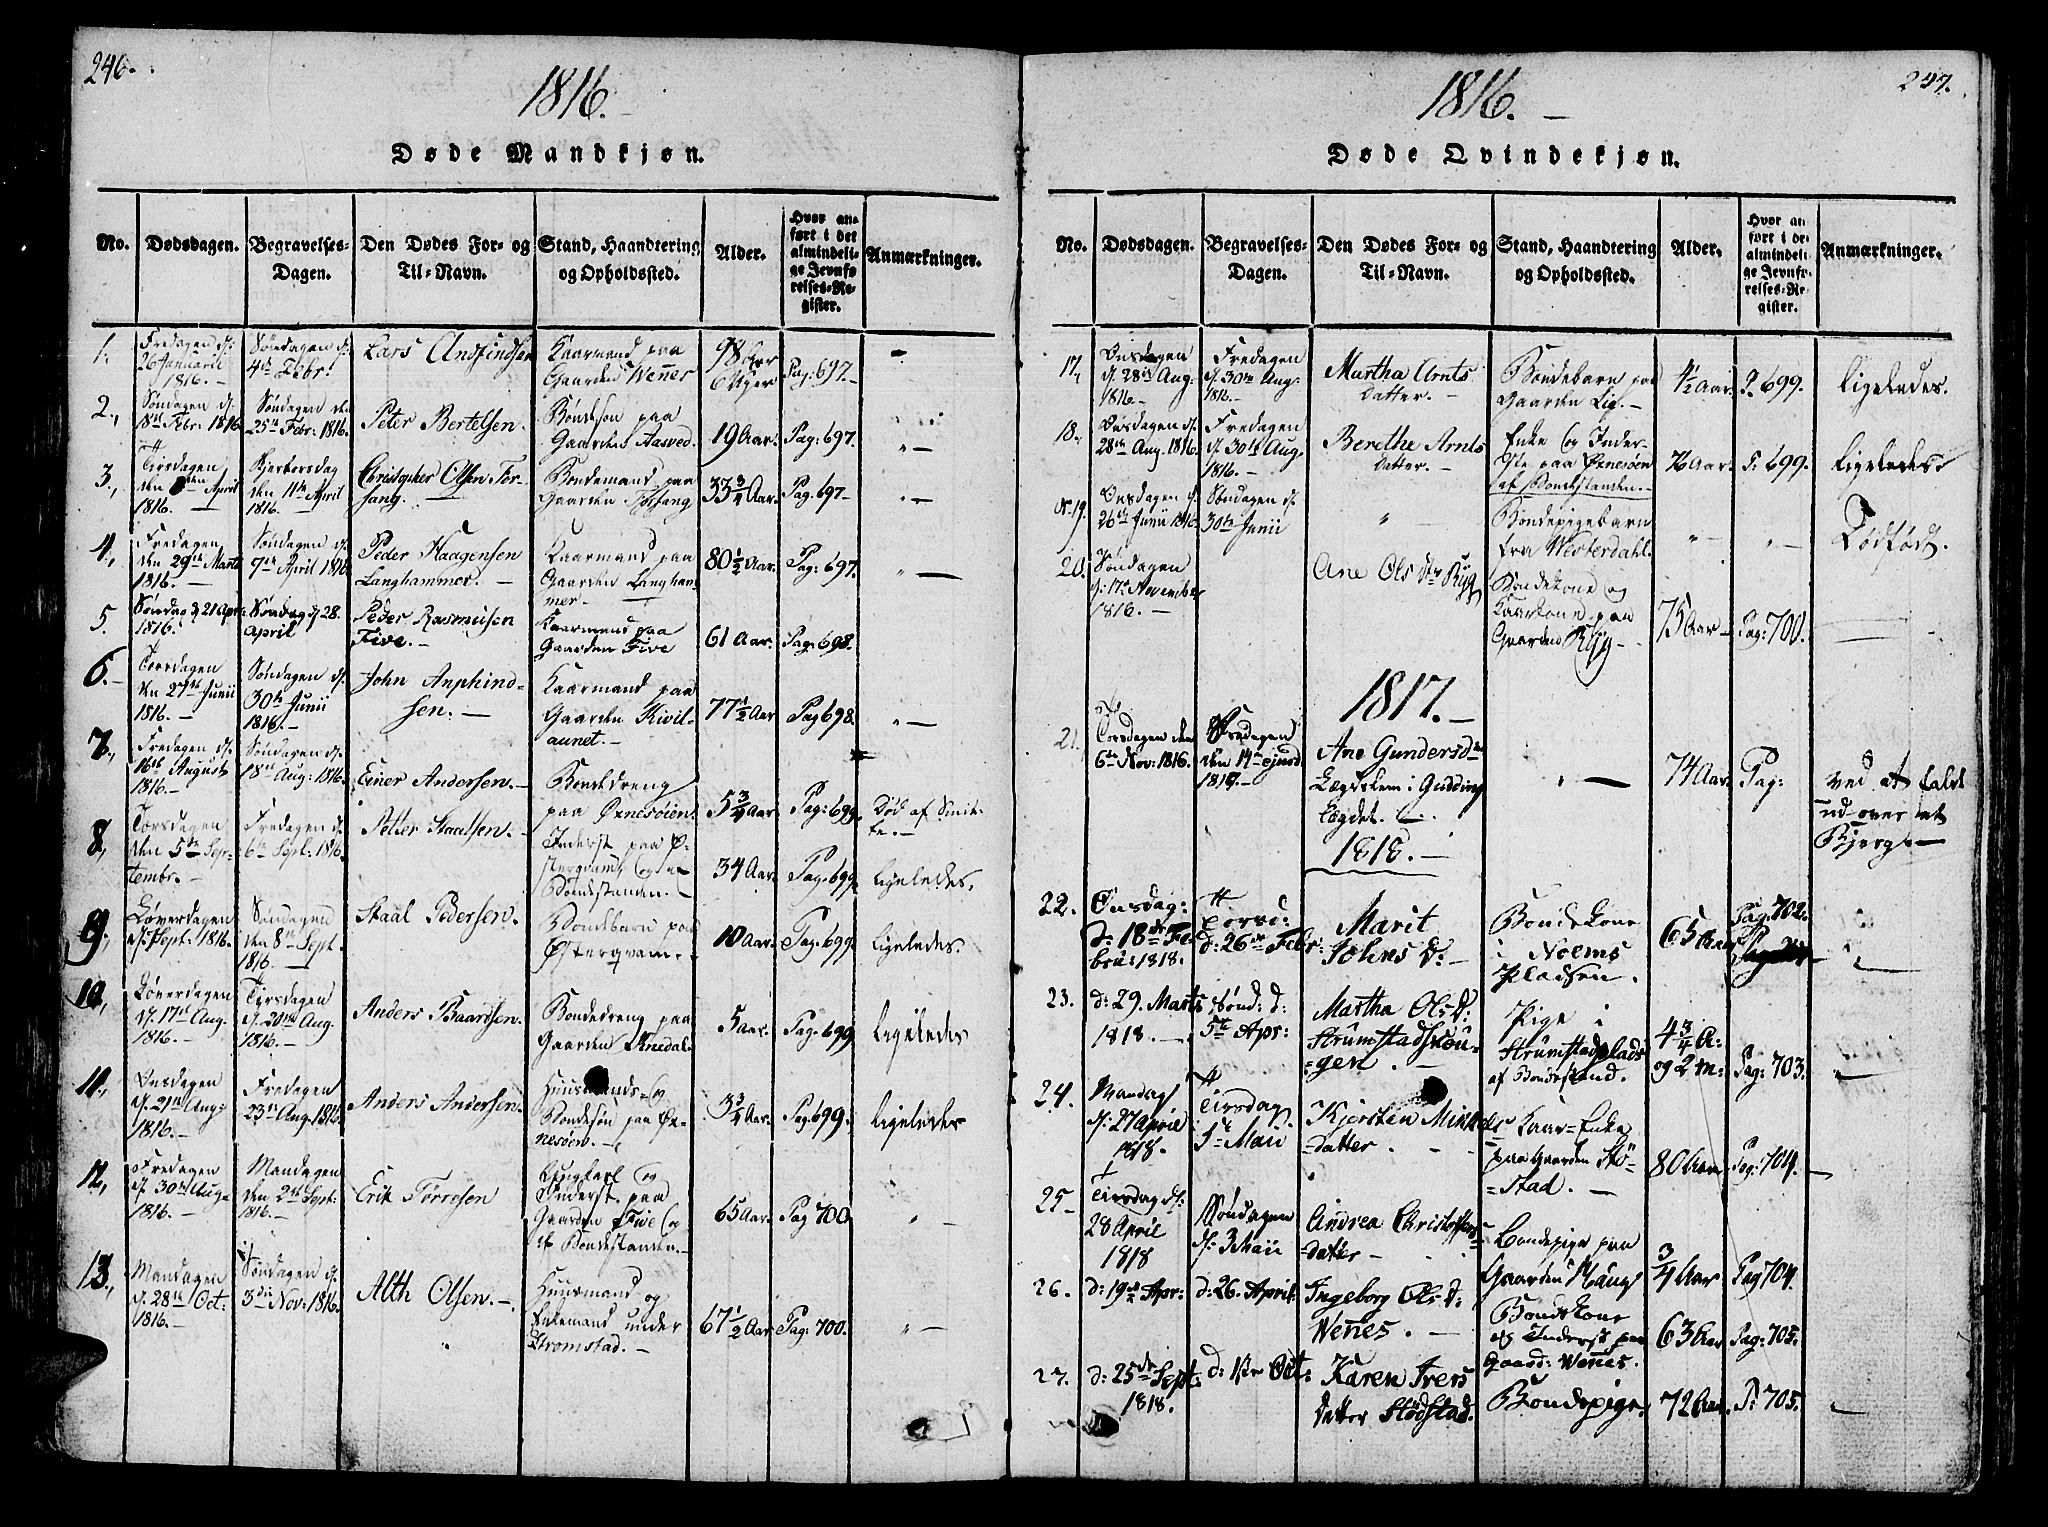 246.
1816.
Døde Mandkjøn.
No.
Dødsdagen.
Begravelses-
Dagen.
Den Dødes For- og
Til-Navn.
Stand, Haandtering
og Opholdssted.
Alder.
Hvor an-
ført i det
almindeli-
ge Jevnfø-
relses-Re-
gister.
Anmærkninger.
1.
Fredagen d:
26 Januarii
1816. –
Søndagen d:
4de Febr:
Lars Ansfindsen
Kaarmand paa
Gaarden Wenes
Pag: 697. –
2.,
Søndagen d:
18de Febr: 1816.
Søndagen den
25de Febr: 1816.
Peter Bertelsen.
Bondesøn paa
Gaarden Aasved
19 Aar.
Pag: 697.
3.,
Tirsdagen
den April
1816. –
den 11te April
1816. –
Christopher Olsen For-
sang. –
Bondemand paa
Gaarden Forsang
33 3/4 Aar.
Pag: 697 –
4.,
Fredagen
den 29de Marti
1816. –
Søndagen d:
7de April 1816.
Peder Haagensen
Langhammer. –
Kaarmand paa
Gaarden Langham-
mer. –
80 1/2 Aar.
Pag: 697.
5.
Søndag d 21 Apr:
1816.
Søndag d 28.
April
Peder Rasmusen
Five. –
Kaarmand paa
Gaarden Five
61 Aar.
Pag: 698.
6. –
Torsdagen
den 27de Junii
1816. –
Søndagen d:
30te Junii
1816. –
John Anphind-
sen. –
Kaarmand paa
Gaarden Kivil-
aunet. –
77 1/2 Aar
Pag 698.
7.,
Fredagen d:
16de August
1816. –
Søndagen d:
18de Aug: 1816.
Einer Andersen. –
Bondedreng
paa Øxnesøien
5 3/4 Aar
Pag: 699.
Død af Smit-
te. –
8.,
Torsdagen
den 5te Sep-
tembr. –
Fredagen d:
6te Sept: 1816.
Petter Staalsen. –
Inderst paa Ø-
stergvam, og af
Bondestanden. –
34 Aar.
Pag: 699.
Ligeledes.
9.,
Løverdagen
d: 7 Sept: 1816.
Søndagen
den 8de Sept.
1816. –
Staal Pedersen.
Bondebarn paa
Østergvam. –
10 Aar.
Pag: 699.
Ligeledes.
10.,
Løverdagen
d: 17de Aug:
1816. –
Tirsdagen
d: 20de Aug.
1816. –
Anders Baardsen.
Bondedreng paa
Gaarden Øxnedal.
5 Aar.
Pag: 699
Ligeledes
11.,
Onsdagen
d: 21de Aug:
1816. –
Fredagen
23de Aug. 1816.
Anders Andersen.
Huusmands- og
Bondesøn paa Øx-
nesøen. –
3 3/4 Aar.
Pag: 699.
Ligeledes
12.,
Fredagen
d: 30te Aug:
1816. –
Mandagen
den 2de Sept:
1816. –
Erik Torresen
Inderst paa
Gaarden Five og
af Bondestanden. –
65 Aar.
Pag 700
13.,
Mandagen
d: 28de Oct:
1816. –
Søndagen d.
3die Nov: 1816.
Alth Olsen. –
Huusmand og
Enkemand under
Stromstad. –
67 1/2 Aar
Pag: 700.
247.
1816. –
Døde Qvindekjøn.
No.
Dødsdagen.
Begravelses-
Dagen.
Den Dødes For- og
Til-Navn.
Stand, Haandtering
og Opholdssted.
Alder.
Hvor an
ført i de
almindeli
ge Jevnfø-
relses-Re
gister.
Anmærkninger.
17.,
Onsdagen
d: 28de Aug:
1816 –
Fredagen
d: 30te Aug:
1816. –
Martha Arnts
Datter. –
Bondebarn paa
Gaarden Lie. –
4 1/2 Aar.
P. 699.
Ligeledes.
18.,
Onsdagen d:
28de Aug. 1816.
Fredagen
d: 30te Aug.
1816. –
Berethe Arnts
Datter. –
Enke og Inder-
ste paa Øxnesøen
af Bondestanden. –
76 Aar.
P: 699.
Ligeledes.
19.
Onsdagen d:
26de Junii 1816.
Søndagen d:
30te Junii
Bondepigebarn
fra Westerdahl.
Dødfødt.
20.
Søndagen
d: 17de November
1816. –
Ane Ols Dtr Ryg
Bondekone og
Kaarkone paa
Gaarden Ryg –
75 Aar –
Pag: 700.
1817. –
21.
Torsdagen den
6te Nov: 1816.
Fredagen
den 14de ejusd
1817. –
Ane Gundersd.
Lægdslem i Gudding
Lægdet.
74 Aar.
Pag:
ved at falde
ud over et
Bjerg. –
1818. –
22.
Onsdag:
d: 18de Fe-
bru: 1818.
Torsd:
d: 26de Febr:
Marit
Johns D: –
Bondekone
i Noems
Pladsen.
65 Aar
Pag: 702.
23.
d: 29. Marts
1818. –
Sønd: d:
5te Apr:
Martha Ols D:
Strumstadskou-
gen. –
Pige i
Strumstadplads
af Bondestand.
4 3/4 A:
og 2 m:
Pag: 703.
24.
Mandag
d: 27 Aprie
1818.
Tirsdag
Maii
Kjersten Mikkels
datter.
Kaar-Enke
paa Gaarden Stö-
stad. –
80 Aar
Pag: 704. –
25 –
Tirsdag d:
28 Aprie
1818
Søndagen
d: 3 Maii
Andrea Christophers
datter –
Bondepige paa
Gaarden Haug
3/4 Aar
Pag 704.
26.
d: 19de Apr:
d: 26. April.
Ingeborg Ols D:
Wenes. –
Bondekone
og Inderst paa
Gaard: Wenes.
63 Aar
Pag: 705.
27.
d: 25de Sept:
1818.
d: 1ste Oct:
Karen Ivers
datter Stödstad.
Bondepige.
72 Aar.
P: 705.